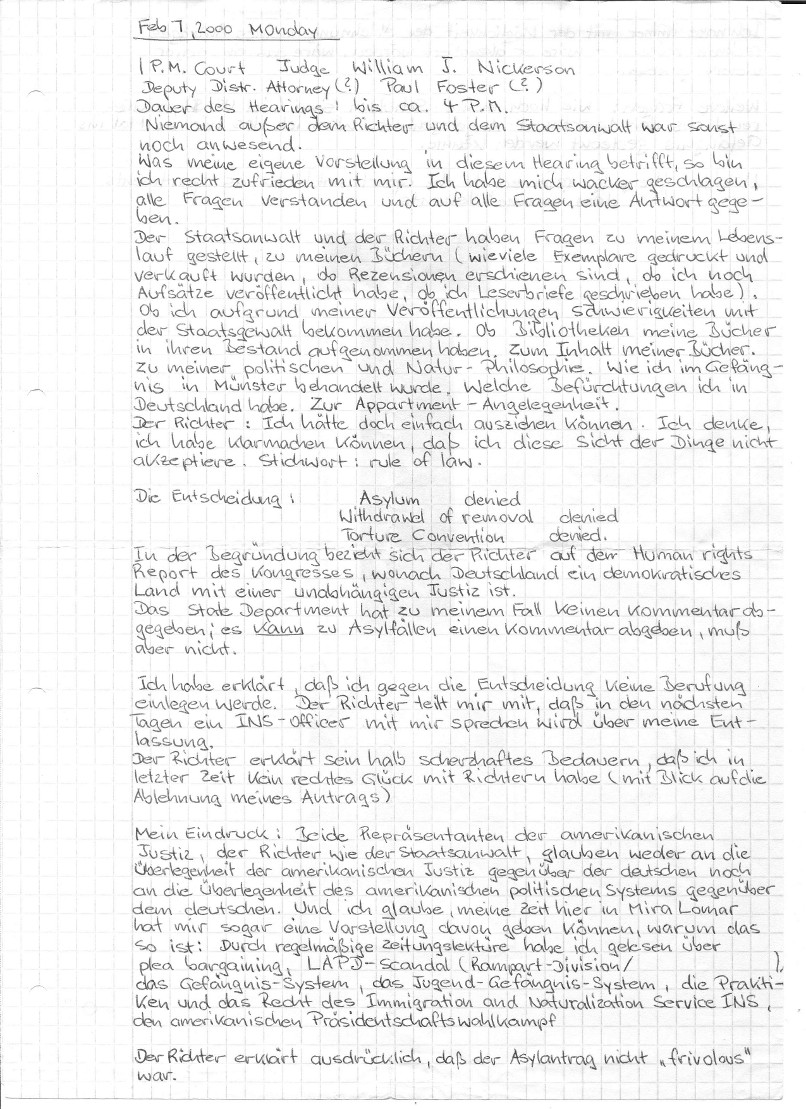 Feb 7, 2000 Monday
1 P.M. Court Judge William J. Nickerson
Deputy Distr. Attorney (?) Paul Foster (?)
Dauer des Hearings: bis ca. 4 P.M.
Niemand außer dem Richter und dem Staatsanwalt war sonst
noch anwesend.
Was meine eigene Vorstellung in diesem Hearing betrifft, so bin
ich recht zufrieden mit mir. Ich habe mich wacker geschlagen,
alle Fragen verstanden und auf alle Fragen eine Antwort gege-
ben.
Der Staatsanwalt und der Richter haben Fragen zu meinem Lebens-
lauf gestellt, zu meinen Büchern (wieviele Exemplare gedruckt und
verkauft wurden, ob Rezensionen erschienen sind, ob ich noch
Aufsätze veröffentlicht habe, ob ich Leserbriefe geschrieben habe).
Ob ich aufgrund meiner Veröffentlichungen Schwierigkeiten mit
der Staatsgewalt bekommen habe. Ob Bibliotheken meine Bücher
in ihren Bestand aufgenommen haben. Zum Inhalt meiner Bücher.
Zu meiner politischen und Natur-Philosophie. Wie ich im Gefäng-
nis in Münster behandelt wurde. Welche Befürchtungen ich in
Deutschland habe. Zur Appartment-Angelegenheit.
Der Richter: Ich hätte doch einfach ausziehen können. Ich denke,
ich habe klarmachen können, daß ich diese Sicht der Dinge nicht
akzeptiere. Stichwort: rule of law.
Die Entscheidung: Asylum denied
Withdrawel of removal denied
Torture Convention denied.
In der Begründung bezieht sich der Richter auf den Human rights
Report des Kongresses, wonach Deutschland ein demokratisches
Land mit einer unabhängigen Justiz ist.
Das State Department hat zu meinem Fall keinen Kommentar ab-
gegeben; es kann zu Asylfällen einen Kommentar abgeben, muß
aber nicht.
Ich habe erklärt, daß ich gegen die Entscheidung keine Berufung
einlegen werde. Der Richter teilt mir mit, daß in den nächsten
Tagen ein INS-Officer mit mir sprechen wird über meine Ent-
lassung.
Der Richter erklärt sein halb scherzhaftes Bedauern, daß ich in
letzter Zeit kein rechtes Glück mit Richtern habe (mit Blick auf die
Ablehnung meines Antrags)
Mein Eindruck: Beide Repräsentanten der amerikanischen
Justiz, der Richter wie der Staatsanwalt, glauben weder an die
Überlegenheit der amerikanischen Justiz gegenüber der deutschen noch
an die Überlegenheit des amerikanischen politischen Systems gegenüber
dem deutschen. Und ich glaube, meine Zeit hier in Mira Lomar
hat mir sogar eine Vorstellung davon geben können, warum das
so ist: Durch regelmäßige Zeitungslektüre habe ich gelesen über
plea bargaining, LAPD-Scandal (Rampart-Division/ ),
das Gefängnis-System, das Jugend-Gefängnis-System, die Prakti-
ken und das Recht des Immigration and Naturalization Service INS,
den amerikanischen Präsidentschaftswahlkampf
Der Richter erklärt ausdrücklich, daß der Asylantrag nicht „frivolous"
war.